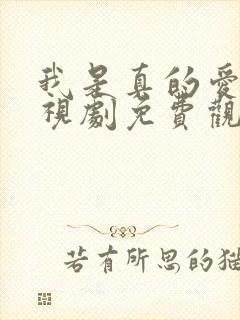 我是真的愛
視劇免費觀
若有所思的猫